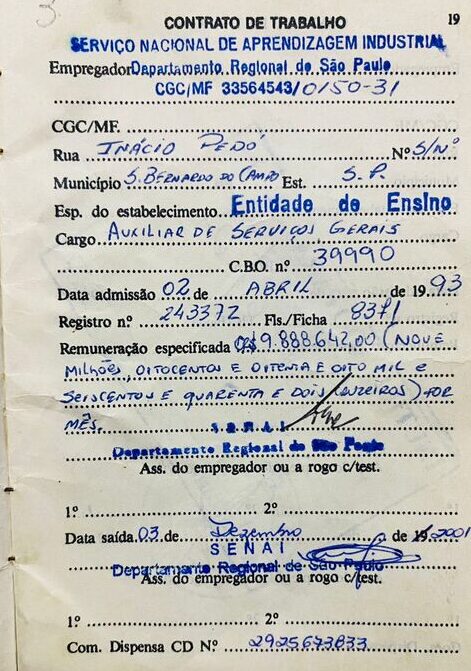 CONTRATO DE TRABALHO 19
SERVIÇO NACIONAL DE APRENDIZAGEM INDUSTRIAL
Empregador Departamento Regional de São Paulo
CGC/MF 33564543/0150-31
CGC/MF.
Rua INÁCIO PEDÓ Nº S/Nº
Município S. BERNARDO DO CAMPO Est. S.P.
Esp. do estabelecimento Entidade de Ensino
Cargo AUXILIAR DE SERVIÇOS GERAIS
C.B.O. nº 39990
Data admissão 02 de ABRIL de 1993
Registro nº 243372 Fls./Ficha 8371
Remuneração especificada CR$9.888.642,00 (NOVE
MILHÕES, OITOCENTOS E OITENTA E OITO MIL E
SEISCENTOS E QUARENTA E DOIS CRUZEIROS) POR
MÊS.
SENAI
Departamento Regional de São Paulo
Ass. do empregador ou a rogo c/test.
1º 2º
Data saída 03 de Dezembro de 19 2001
SENAI
Departamento Regional de São Paulo
Ass. do empregador ou a rogo c/test.
1º 2º
Com. Dispensa CD Nº 2925673833